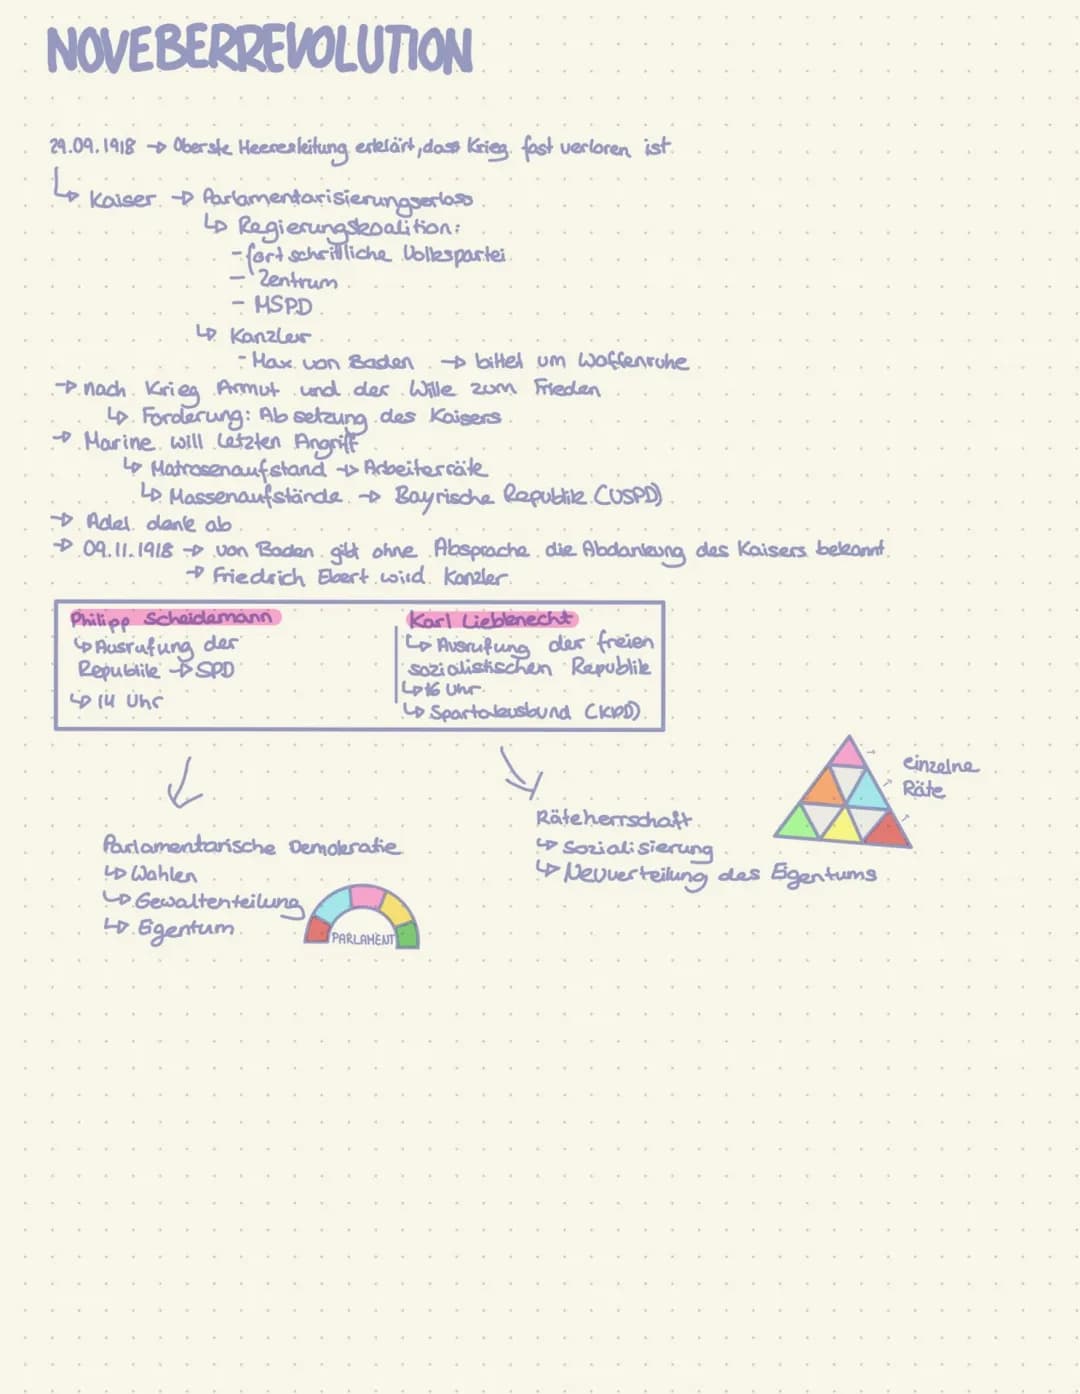 NOVEBERREVOLUTION
29.09.1918 → Oberste Heeresleitung erklärt, dass Krieg fast verloren ist
↳ Kaiser → Parlamentarisierungserlass
↳ Regierungskoalition:
- fortschrittliche Volkspartei
- Zentrum
- MSPD
↳ Kanzler
- Max von Baden → bittet um Waffenruhe
→ nach Krieg Armut und der Wille zum Frieden
↳ Forderung: Absetzung des Kaisers
→ Marine will letzten Angriff
↳ Matrosenaufstand → Arbeiterräte
↳ Massenaufstände → Bayrische Republik (USPD)
→ Adel dank ab
→ 09.11.1918 → von Baden gibt ohne Absprache die Abdankung des Kaisers bekannt
→ Friedrich Ebert wird Kanzler
Philipp Scheidemann
↳ Ausrufung der
Republik → SPD
↳ 14 Uhr
Karl Liebknecht
↳ Ausrufung der freien
sozialistischen Republik
↳ 16 Uhr
↳ Spartakusbund (KPD)
einzelne
Räte
Parlamentarische Demokratie
↳ Wahlen
↳ Gewaltenteilung
↳ Eigentum
PARLAMENT
Räteherrschaft
↳ Sozialisierung
↳ Neuverteilung des Eigentums